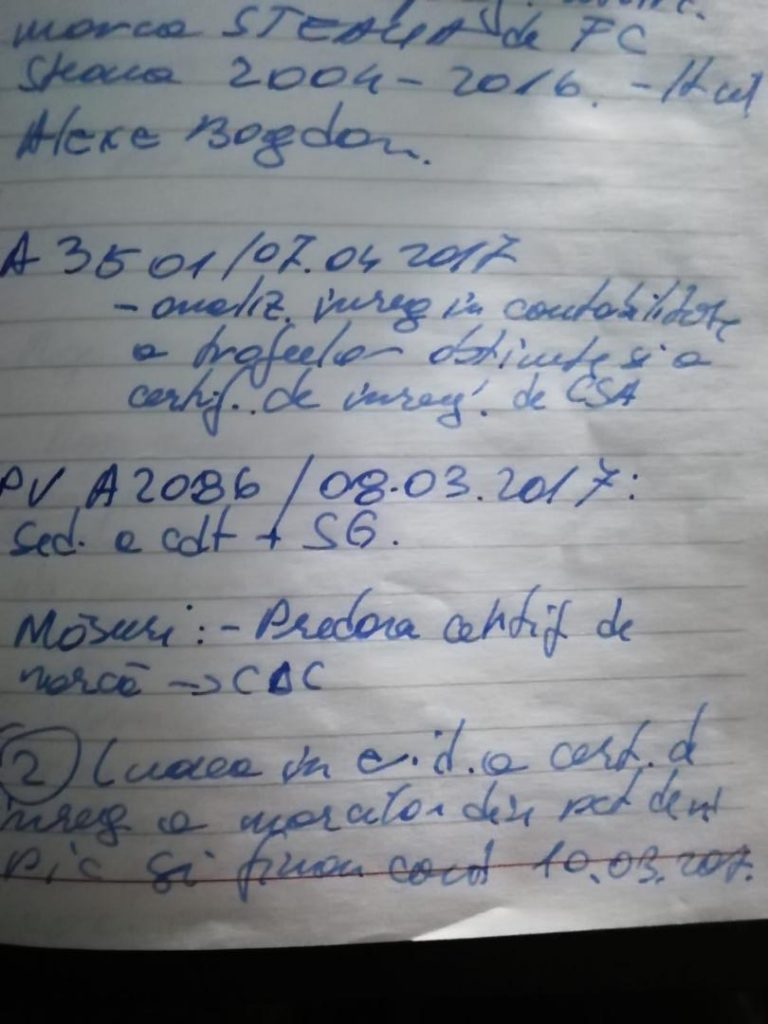 marca STEAUA de FC
Steaua 2004-2016. -
Alexe Bogdan.
A 3501/07.04 2017
- analiz. inreg in contabilitate
a trofeelor obtinute si a
certif. de inreg. de CSA
PV A2086/08.03.2017:
Sed. a cdt + SG.
Măsuri: - Predarea certif de
marcă -> CAC
② Luarea in evid. a cert. d
inreg a marcilor din pct de
pic si finan cont 10.03.2017.